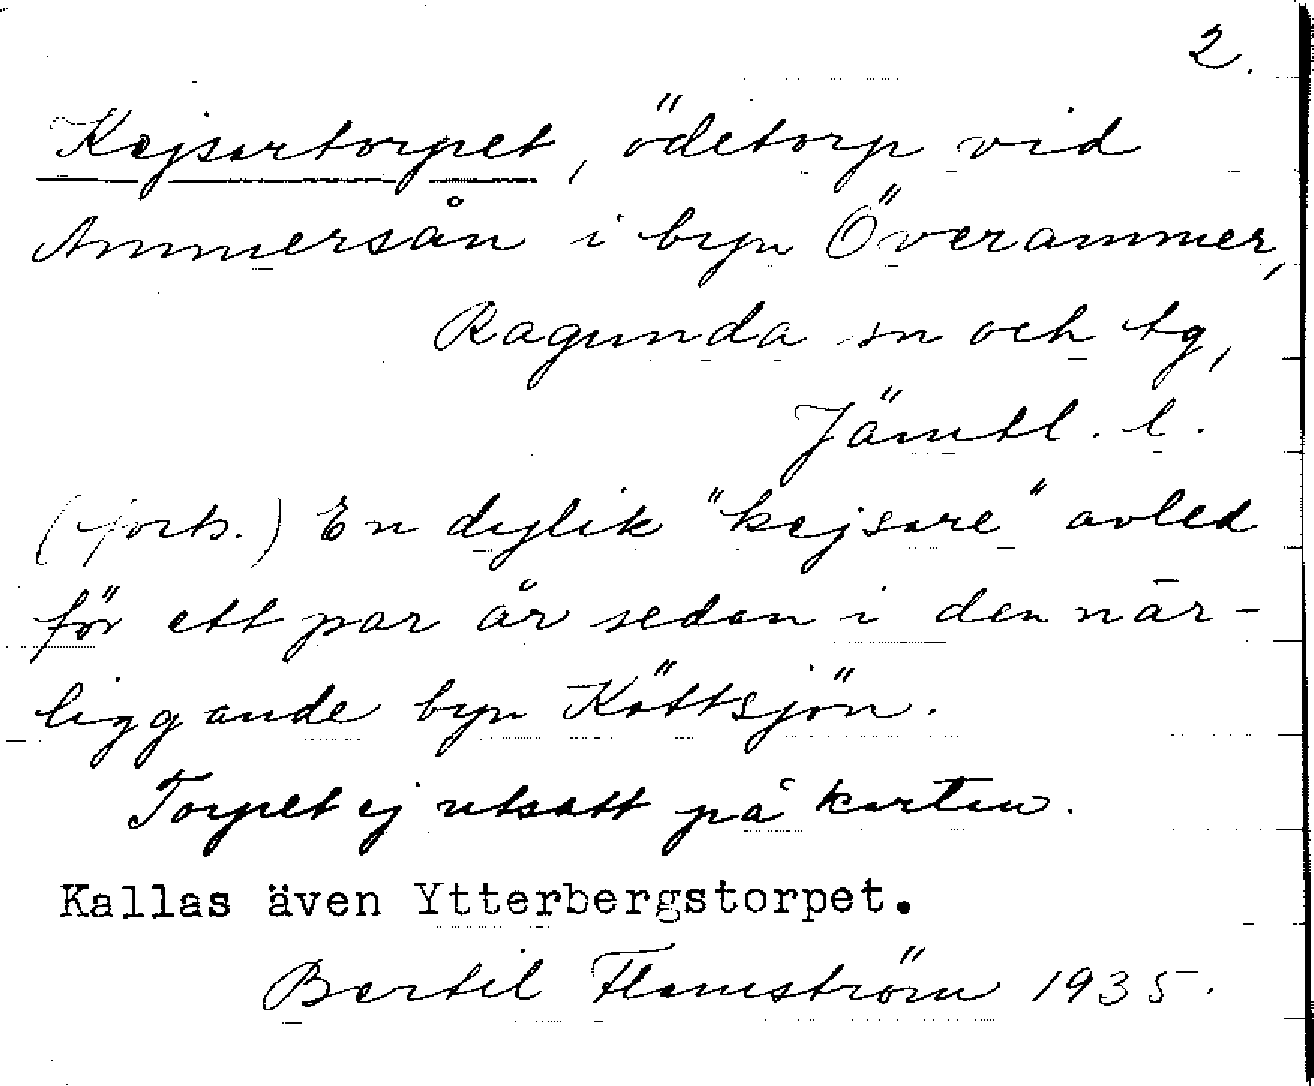 2.
Kejsartorpet, ödetorp vid
Ammersån i byn Överammer,
Ragunda sn och tg,
Jämtl. l.
(forts.) En dylik "kejsare" avled
för ett par år sedan i den när-
liggande byn Köttsjön.
Torpet ej utsatt på kartan.
Kallas även Ytterbergstorpet.
Bertil Flemström 1935.